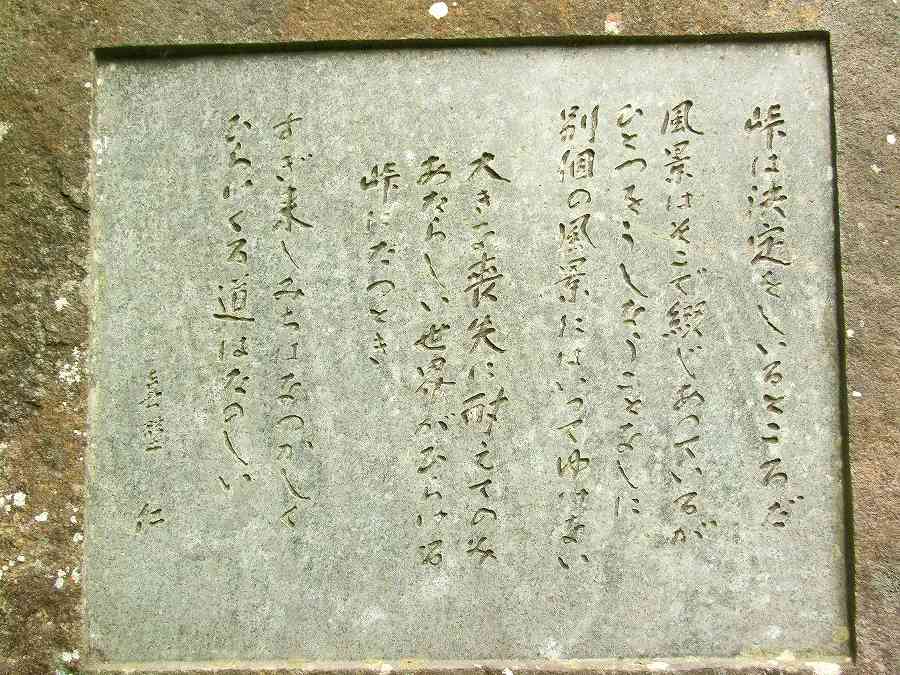 峠は決定をしいるところだ
風景はそこで綴じあっているが
ひとつをうしなうことなしに
別個の風景にはいってゆけない
大きな喪失に耐えてのみ
あたらしい世界がひらける
峠にたつとき
すぎ来しみちはなつかしく
ひらけくる道はたのしい
真壁 仁